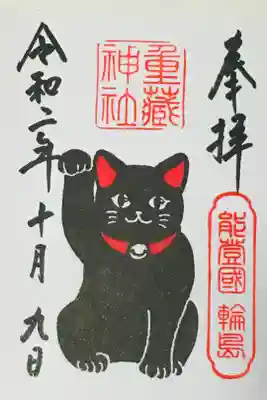 奉拝
能登國 輪島
重蔵
神社
令和二年十月九日